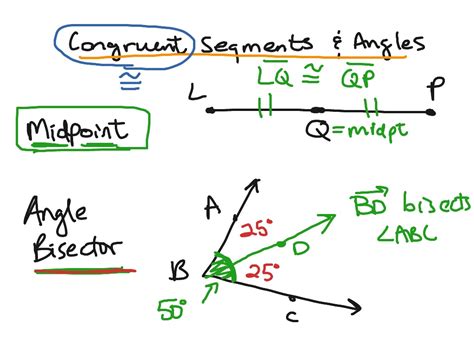 Congruent Segments & Angles
≅
L̅Q̅ ≅ Q̅P̅
L
P
Midpoint
Q = midpt
Angle
Bisector
A
25°
D
BD⃗ bisects
∠ABC
B
25°
50°
C